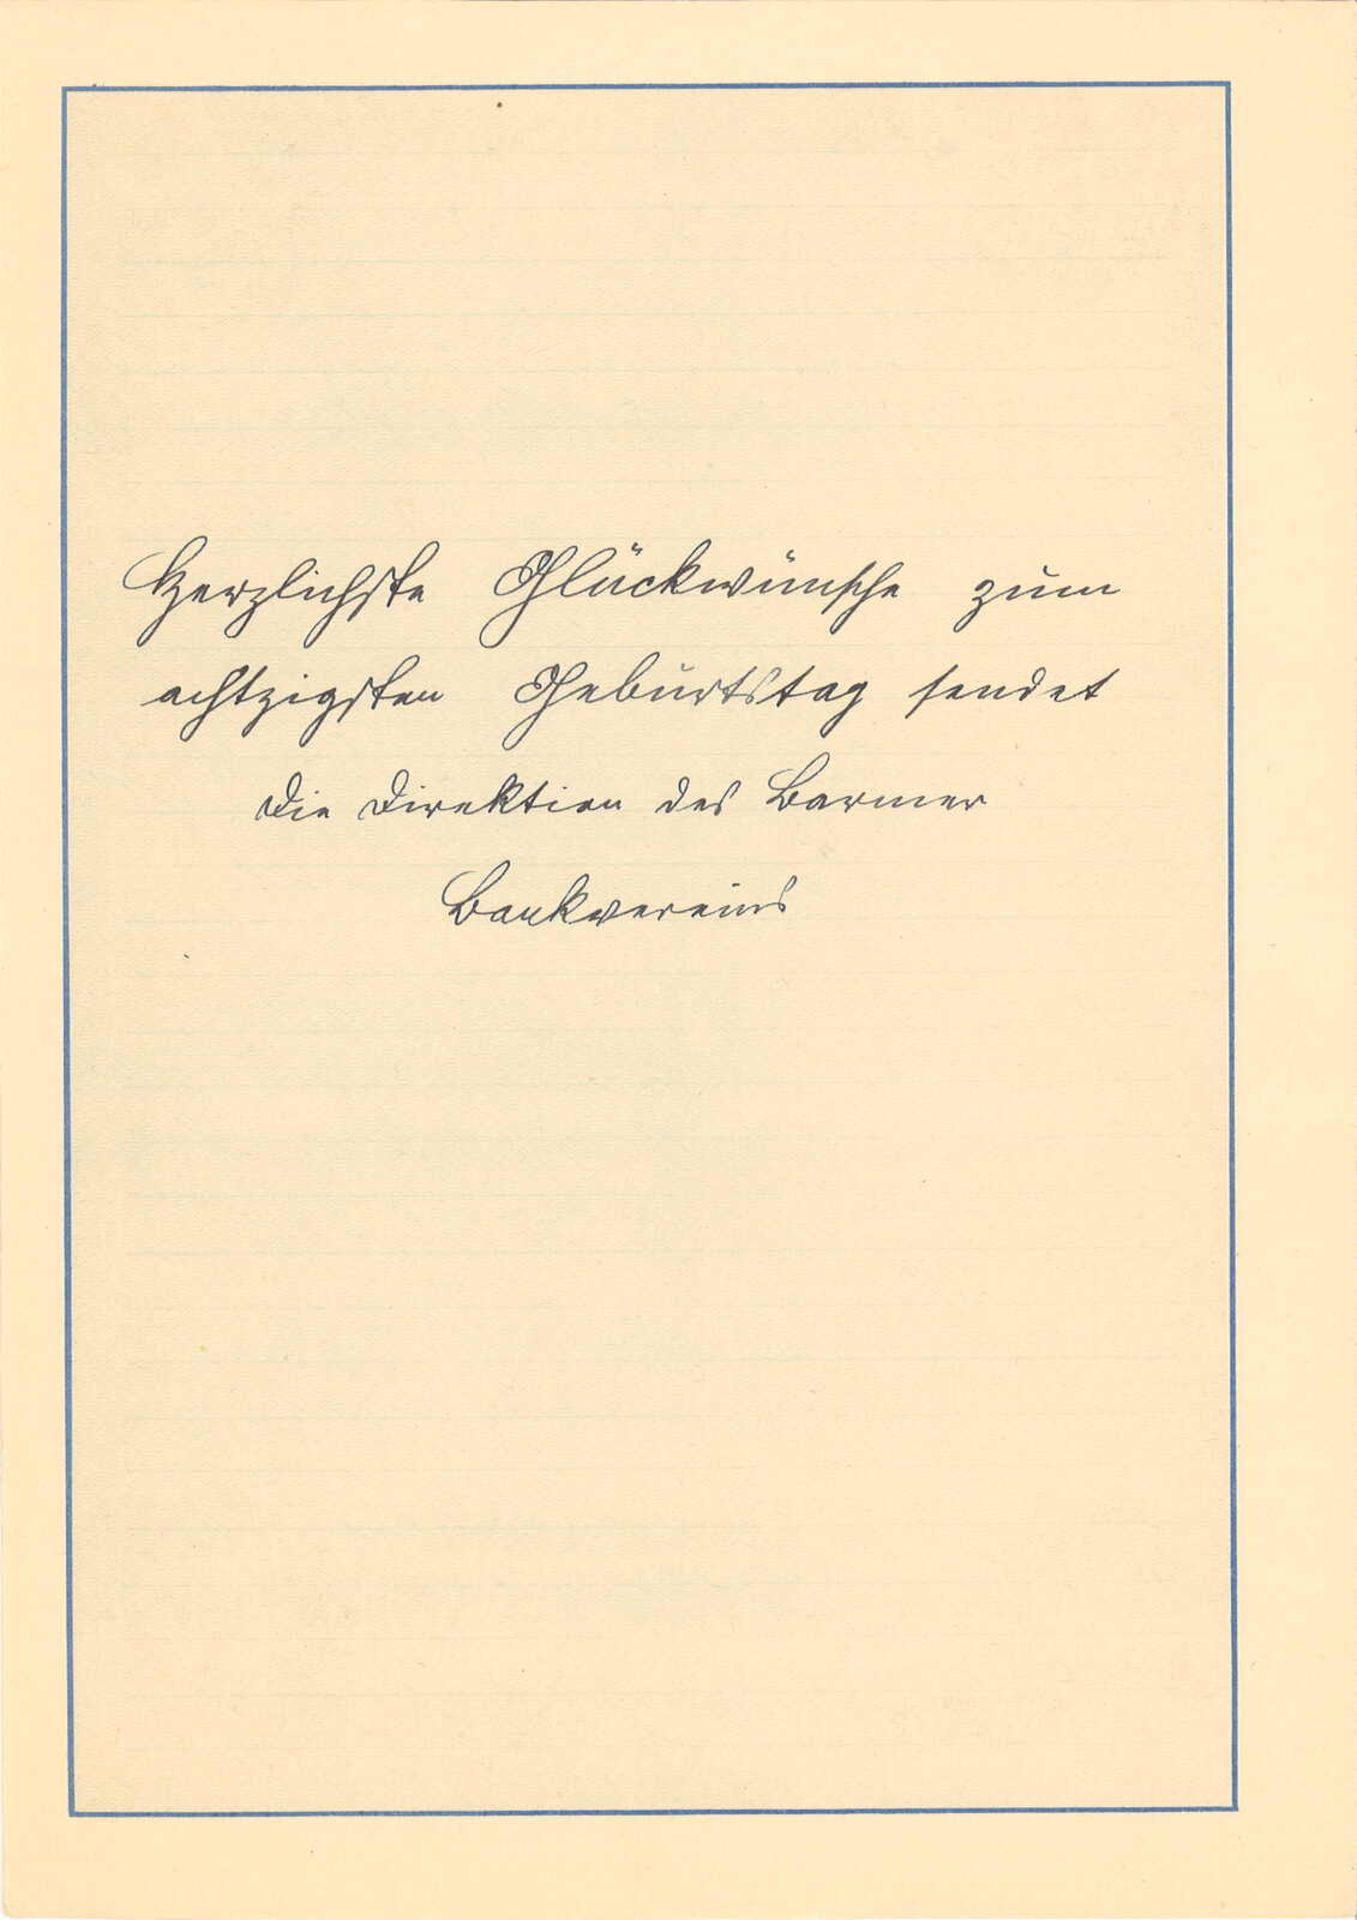 Herzlichste Glückwünsche zum
achtzigsten Geburtstag sendet
die Direktion des Barmer
Bankvereins